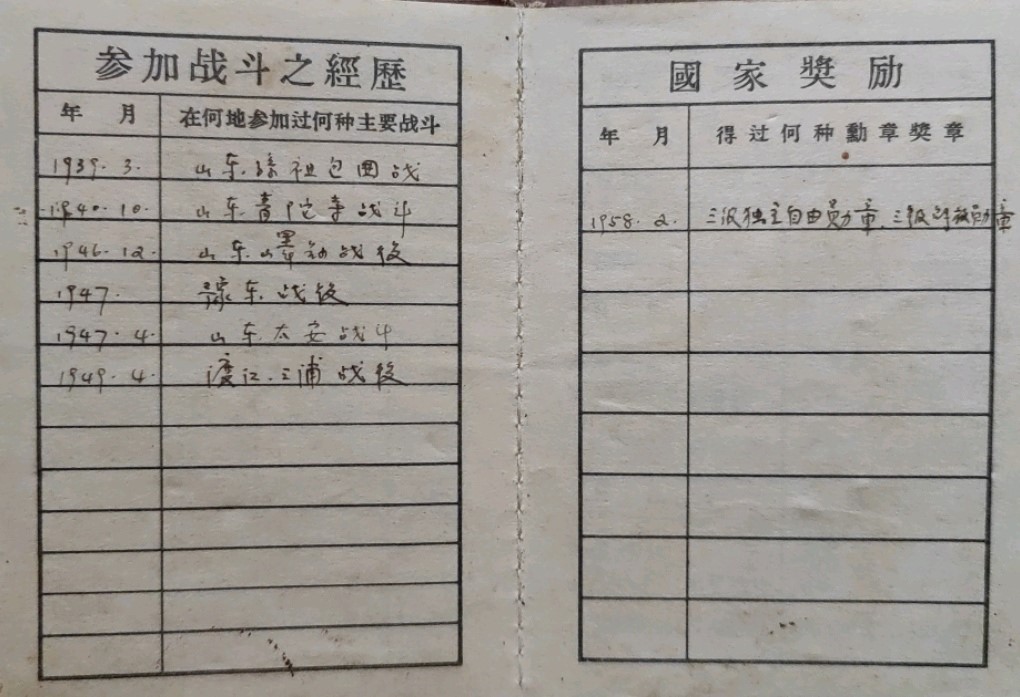 参加战斗之經歷
年 月 在何地参加过何种主要战斗
1939.3. 山东孫祖包围战
1940.10. 山东青陀寺战斗
1946.12. 山东战役
1947. 豫东战役
1947.4. 山东太安战斗
1949.4. 渡江.三浦战役
國家獎励
年 月 得过何种勳章獎章
1958.2. 三级独立自由勋章.三级解放勋章